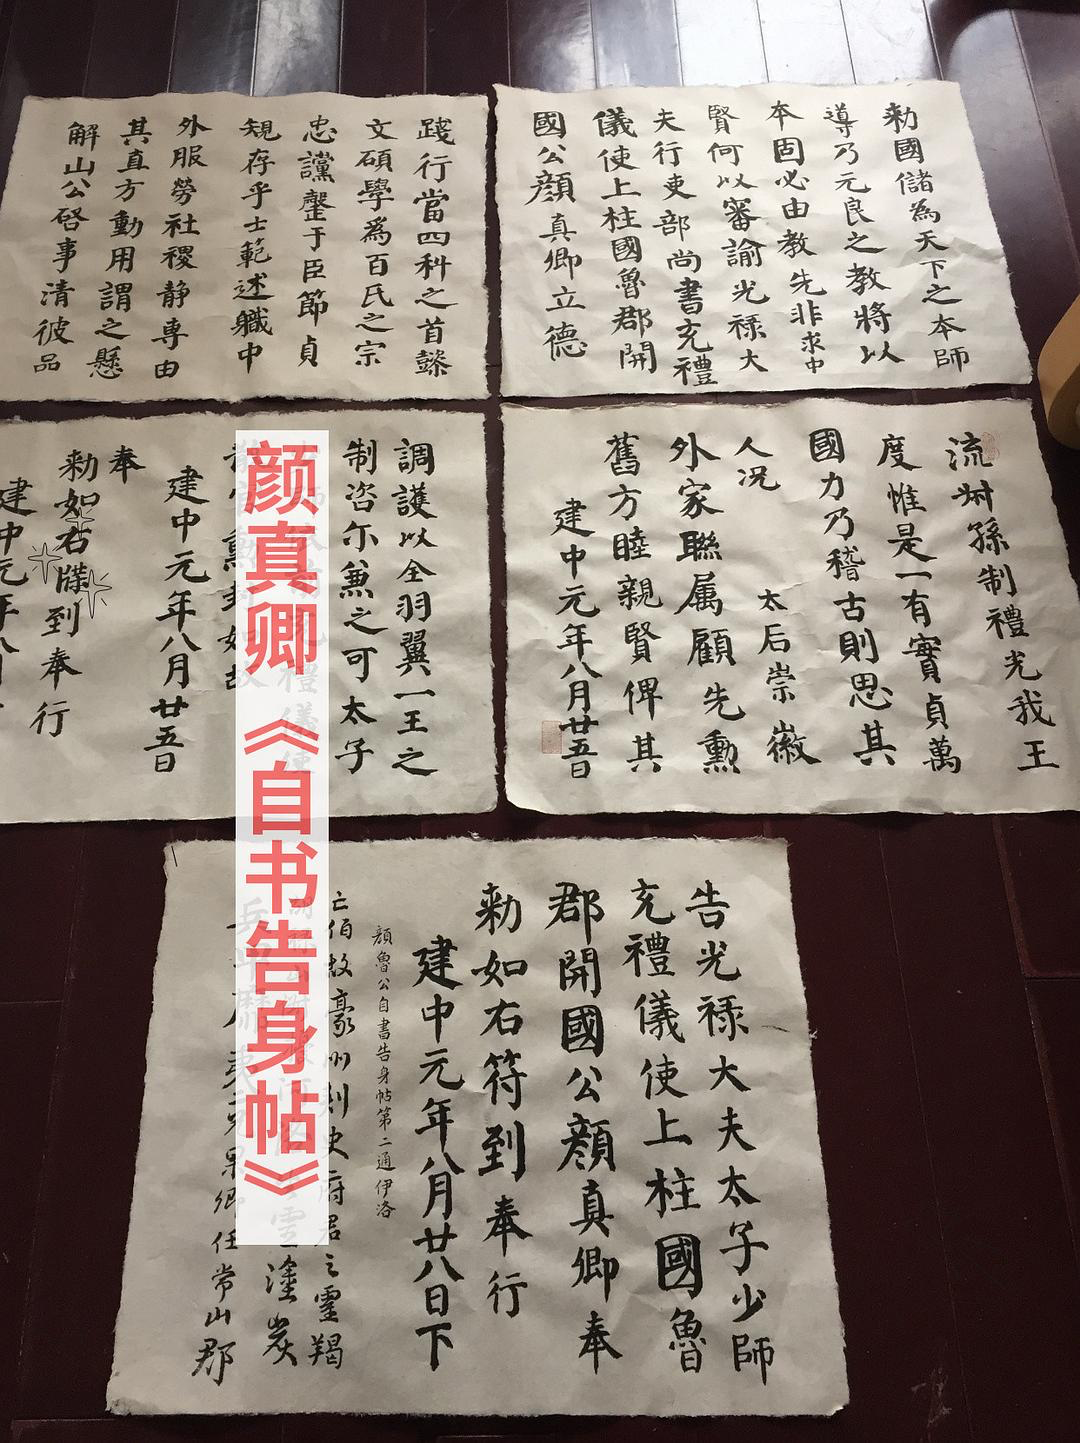 颜真卿《自书告身帖》
勑國儲為天下之本師
導乃元良之教將以
本固必由教先非求中
賢何以審諭光祿大
夫行吏部尚書充禮
儀使上柱國魯郡開
國公顏真卿立德
踐行當四科之首懿
文碩學為百氏之宗
忠讜罄于臣節貞
規存乎士範述職中
外服勞社稷静專由
其直方動用謂之懸
解山公啓事清彼品
流艸孫制禮光我王
度惟是一有實貞萬
國力乃稽古則思其
人况 太后崇徽
外家聯属顧先勳
舊方睦親賢俾其
建中元年八月廿五日
調護以全羽翼一王之
制咨尓兼之可太子
禮儀使
散官勲封如故
建中元年八月廿五日
奉
勑如右牒到奉行
建中元年八月
告光禄大夫太子少師
充禮儀使上柱國魯
郡開國公顏真卿奉
勑如右符到奉行
建中元年八月廿八日下
顏魯公自書告身帖第二通伊洛
亡伯故豪州刺史府君之霊羯
塗炭
兄杲卿任常山郡